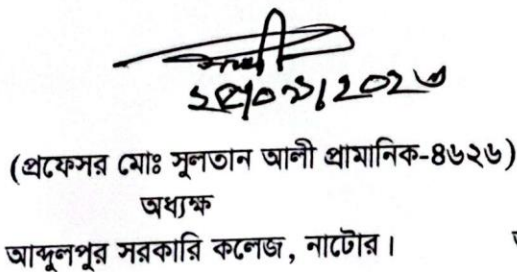 (প্রফেসর মোঃ সুলতান আলী প্রামানিক-৪৬২৬)
অধ্যক্ষ
আব্দুলপুর সরকারি কলেজ, নাটোর।